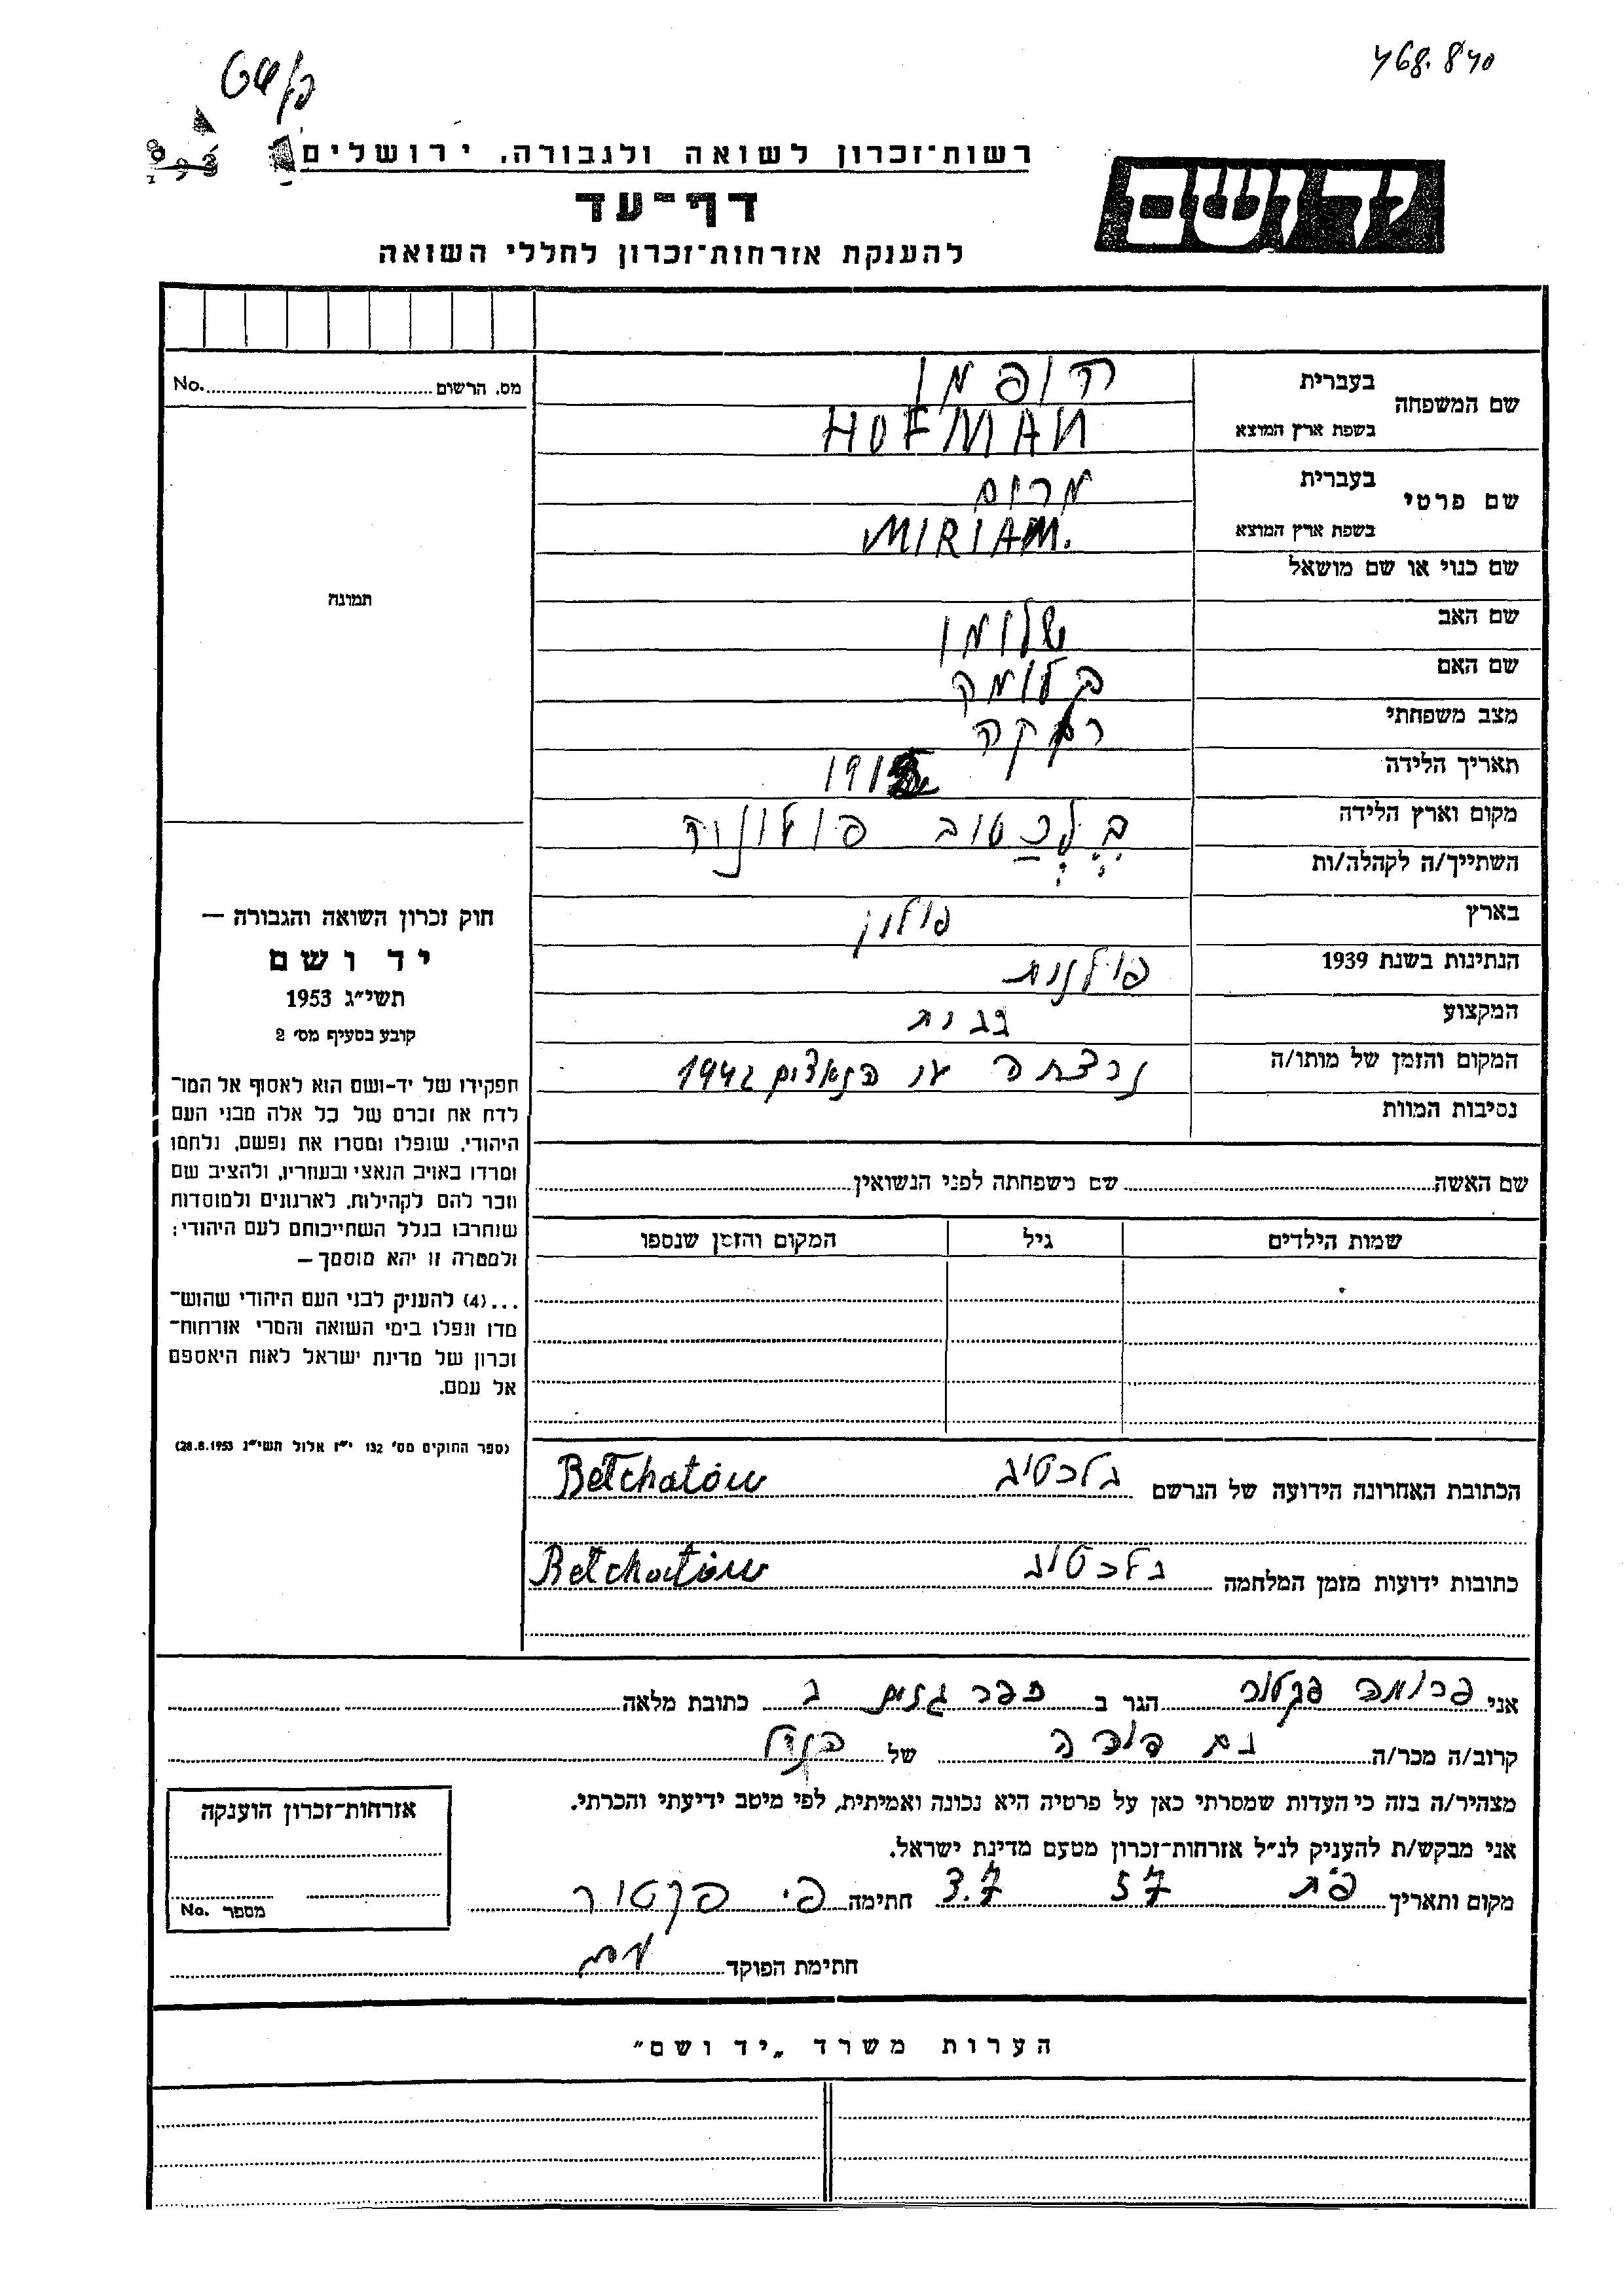 468.840
רשות־זכרון לשואה ולגבורה, ירושלים
יד ושם
דף־עד
להענקת אזרחות־זכרון לחללי השואה
מס. הרשום No.
תמונה
שם המשפחה
בעברית הופמן
בשפת ארץ המוצא HOFMAN
שם פרטי
בעברית מרים
בשפת ארץ המוצא MIRIAM.
שם כנוי או שם מושאל
שם האב שלומו
שם האם
מצב משפחתי רווקה
תאריך הלידה 191
מקום וארץ הלידה בלכטוב פולוניה
השתייך/ה לקהלה/ות
בארץ פולין
הנתינות בשנת 1939 פולנית
המקצוע
המקום והזמן של מותו/ה נרצחה הנאצים 1942
נסיבות המוות
שם האשה שם משפחתה לפני הנשואין
שמות הילדים גיל המקום והזמן שנספו
חוק זכרון השואה והגבורה —
יד ושם
תשי״ג 1953
קובע בסעיף מס׳ 2
תפקידו של יד-ושם הוא לאסוף אל המו־
לדת את זכרם של כל אלה מבני העם
היהודי, שנפלו ומסרו את נפשם, נלחמו
ומרדו באויב הנאצי ובעוזריו, ולהציב שם
וזכר להם לקהילות, לארגונים ולמוסדות
שנחרבו בגלל השתייכותם לעם היהודי;
ולמטרה זו יהא מוסמך —
...(4) להעניק לבני העם היהודי שהוש־
מדו ונפלו בימי השואה והמרי אזרחות־
זכרון של מדינת ישראל לאות היאספם
אל עמם.
(ספר החוקים מס׳ 132 י״ז אלול תשי״ג 28.8.1953)
הכתובת האחרונה הידועה של הנרשם בלכטוב Bełchatów
כתובות ידועות מזמן המלחמה בלכטוב Bełchatów
אני פרומה פקטור הגר ב כפר גנים ב כתובת מלאה
קרוב/ה מכר/ה בת דודה של הנ״ל
מצהיר/ה בזה כי העדות שמסרתי כאן על פרטיה היא נכונה ואמיתית, לפי מיטב ידיעתי והכרתי.
אני מבקש/ת להעניק לנ״ל אזרחות־זכרון מטעם מדינת ישראל.
מקום ותאריך פ״ת 57 3.7 חתימה פ׳ פקטור
חתימת הפוקד
אזרחות־זכרון הוענקה
מספר No.
הערות משרד „יד ושם״